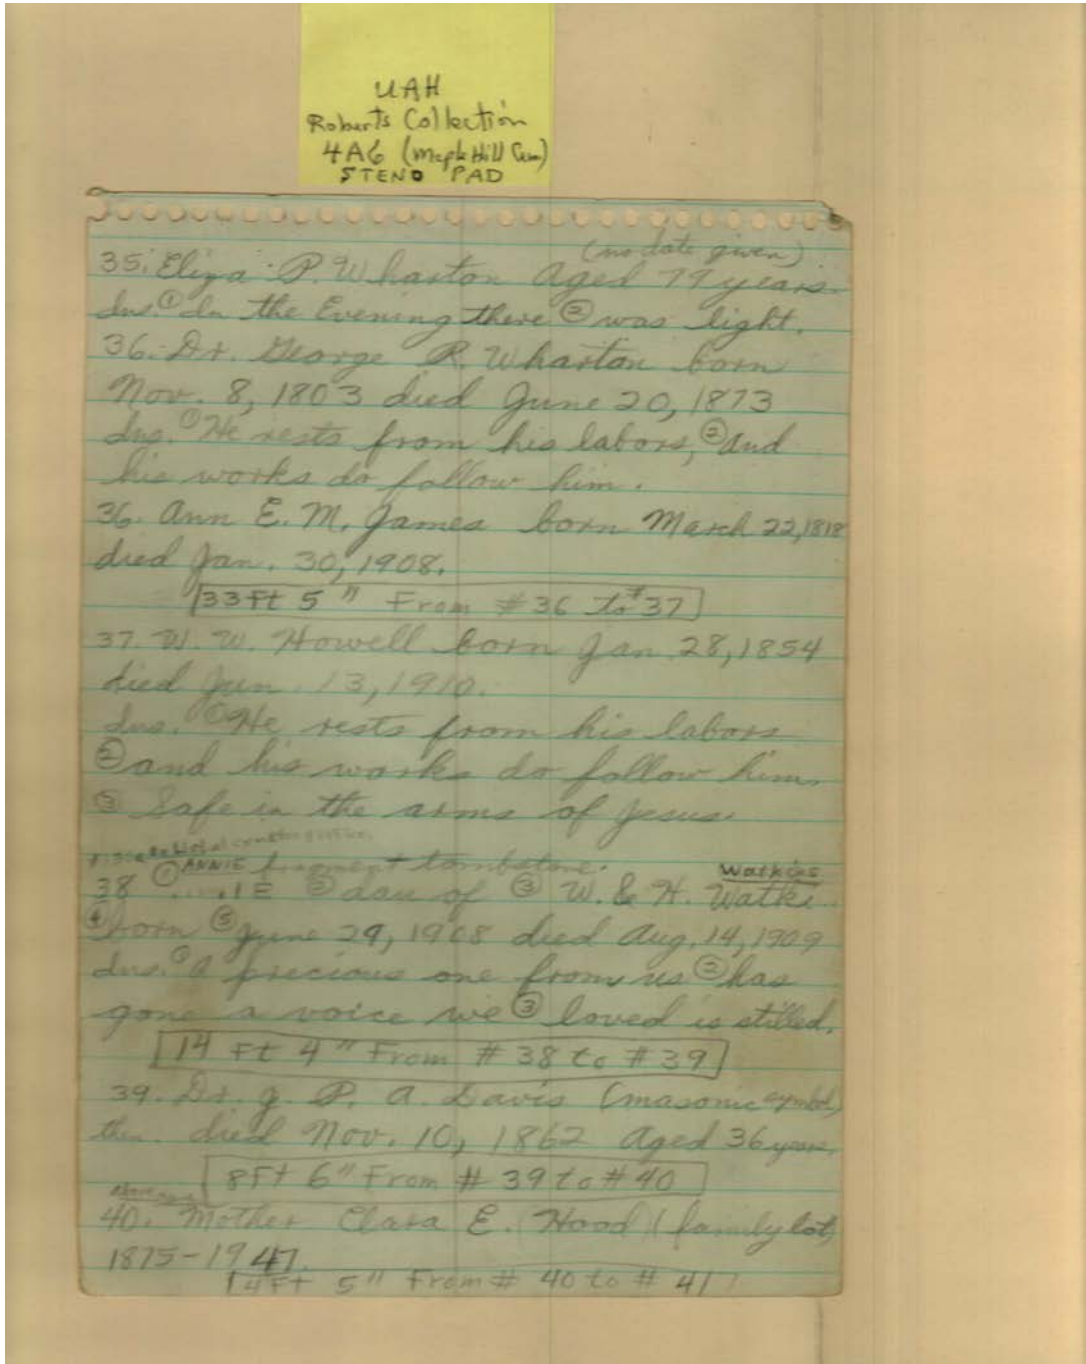 UAH
Roberts Collection
4A6 (Maple Hill Cem)
STENO PAD
(no date given)
35. Eliza P. Wharton Aged 79 years.
Ins. ① In the Evening there ② was light.
36. Dr. George R. Wharton born
Nov. 8, 1803 died June 20, 1873
Ins. ① He rests from his labors, ② and
his works do follow him.
36. Ann E. M. James born March 22, 1818
died Jan. 30, 1908.
33 Ft 5 " From # 36 to # 37
37. W. W. Howell born Jan 28, 1854
died Jun 13, 1910.
Ins. ① He rests from his labors
② and his works do follow him.
③ Safe in the arms of Jesus.
① ANNIE fragment tombstone. Watkins
38 .....IE ② dau of ③ W. & H. Watki
④ born ⑤ June 29, 1908 died Aug. 14, 1909
Ins. ① A precious one from us ② has
gone a voice we ③ loved is stilled.
14 Ft 4 " From # 38 to # 39
39. Dr. J. P. A. Davis (masonic symbol)
died Nov. 10, 1862 Aged 36 years.
8 Ft 6 " From # 39 to # 40
40. Mother Clara E. (Hood) (family lot)
1875-1947.
14 Ft 5 " From # 40 to # 41